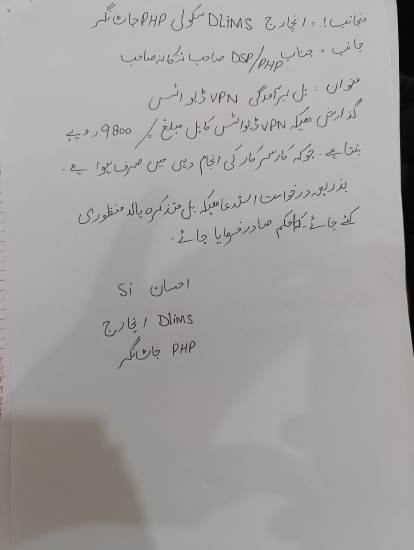 منجانب: انچارج DLiMS سکول PHP جٹانگر
جانب: جناب DSP/PHP صاحب ننکانہ صاحب
عنوان: بل برآمدگی VPN ڈیوائس
گذارش ہیکہ VPN ڈیوائس کا بل مبلغ /9800 روپے
بنتا ہے۔ جوکہ کار سرکار کی انجام دہی میں صرف ہوا ہے۔
بذریعہ درخواست استدعا ہیکہ بل متذکرہ بالا منظوری
کئے جانے کا حکم صادر فرمایا جائے۔
احسان Si
انچارج DLiMS
PHP